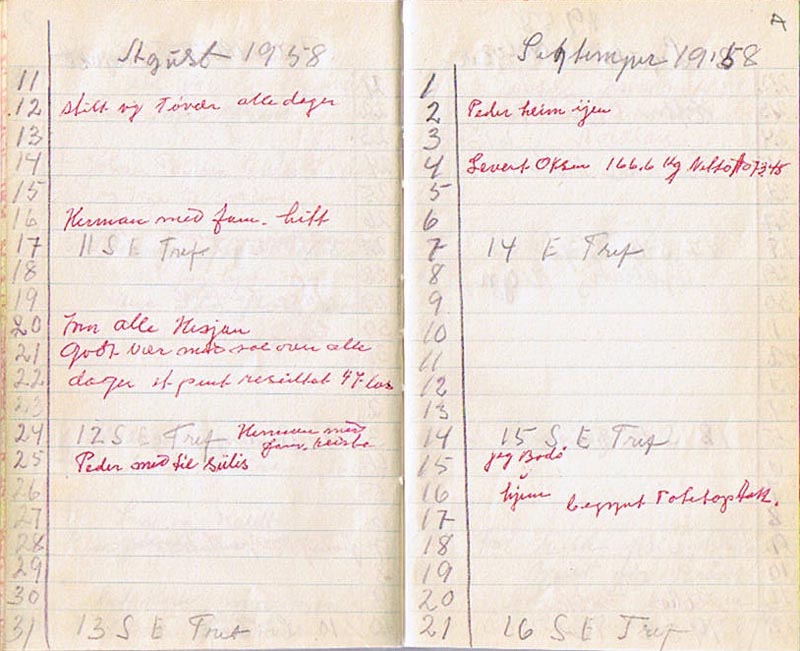 August 1958
11
12 stilt og Tóvær alle dager
13
14
15
16 Herman med fam. hitt
17 11 S E Tref
18
19
20 Inn alle Hesjan
21 Godt vær med sol over alle
22 dager et pent resultat 47 las
23
24 12 S E Tref Herman med
fam. reiste
25 Peder med til Sulis
26
27
28
29
30
31 13 S E Tref
A
September 1958
1
2 Peder heim ijen
3
4 Levert Oksen 166.6 Kg
5
6
7 14 E Tref
8
9
10
11
12
13
14 15 S. E Tref
15 jeg Bodö
16 hjem begynt
17
18
19
20
21 16 S E Tref